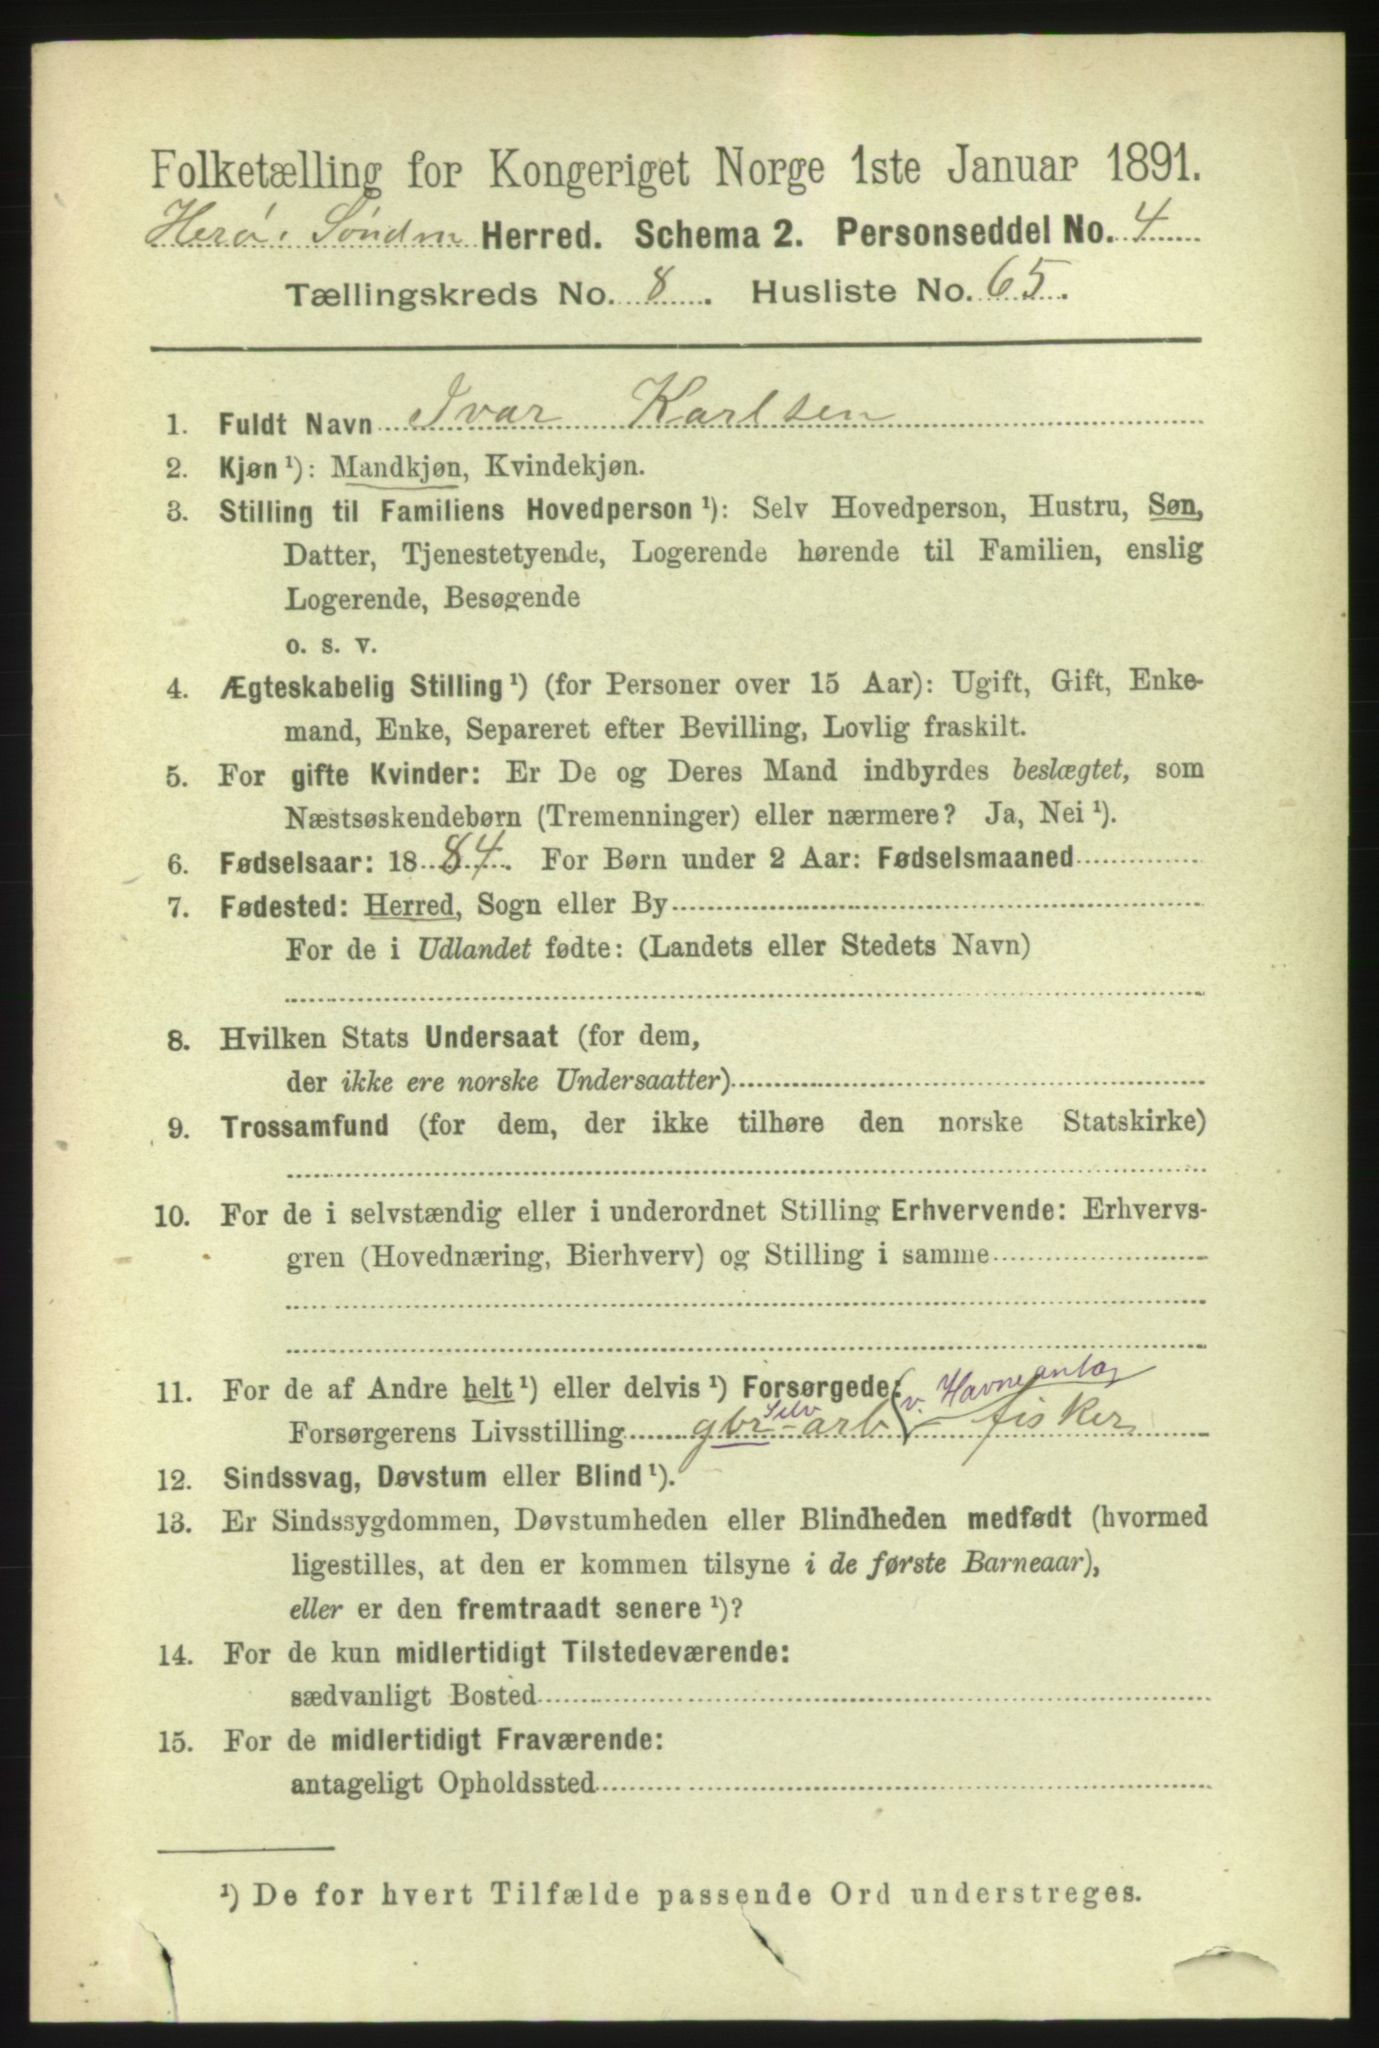 Folketælling for Kongeriget Norge 1ste Januar 1891.
Herø, Søndm Herred. Schema 2. Personseddel No. 4
Tællingskreds No. 8. Husliste No. 65.
1. Fuldt Navn Ivar Karlsen
2. Kjøn ¹): Mandkjøn, Kvindekjøn.
3. Stilling til Familiens Hovedperson ¹): Selv Hovedperson, Hustru, Søn,
Datter, Tjenestetyende, Logerende hørende til Familien, enslig
Logerende, Besøgende
o. s. v.
4. Ægteskabelig Stilling ¹) (for Personer over 15 Aar): Ugift, Gift, Enke-
mand, Enke, Separeret efter Bevilling, Lovlig fraskilt.
5. For gifte Kvinder: Er De og Deres Mand indbyrdes beslægtet, som
Næstsøskendebørn (Tremenninger) eller nærmere? Ja, Nei ¹).
6. Fødselsaar: 1884. For Børn under 2 Aar: Fødselsmaaned
7. Fødested: Herred, Sogn eller By
For de i Udlandet fødte: (Landets eller Stedets Navn)
8. Hvilken Stats Undersaat (for dem,
der ikke ere norske Undersaatter)
9. Trossamfund (for dem, der ikke tilhøre den norske Statskirke)
10. For de i selvstændig eller i underordnet Stilling Erhvervende: Erhvervs-
gren (Hovednæring, Bierhverv) og Stilling i samme
11. For de af Andre helt ¹) eller delvis ¹) Forsørgede:
v. Havneanlæg
Selv
Forsørgerens Livsstilling gbr - arb fisker
12. Sindssvag, Døvstum eller Blind ¹).
13. Er Sindssygdommen, Døvstumheden eller Blindheden medfødt (hvormed
ligestilles, at den er kommen tilsyne i de første Barneaar),
eller er den fremtraadt senere ¹)?
14. For de kun midlertidigt Tilstedeværende:
sædvanligt Bosted
15. For de midlertidigt Fraværende:
antageligt Opholdssted
¹) De for hvert Tilfælde passende Ord understreges.